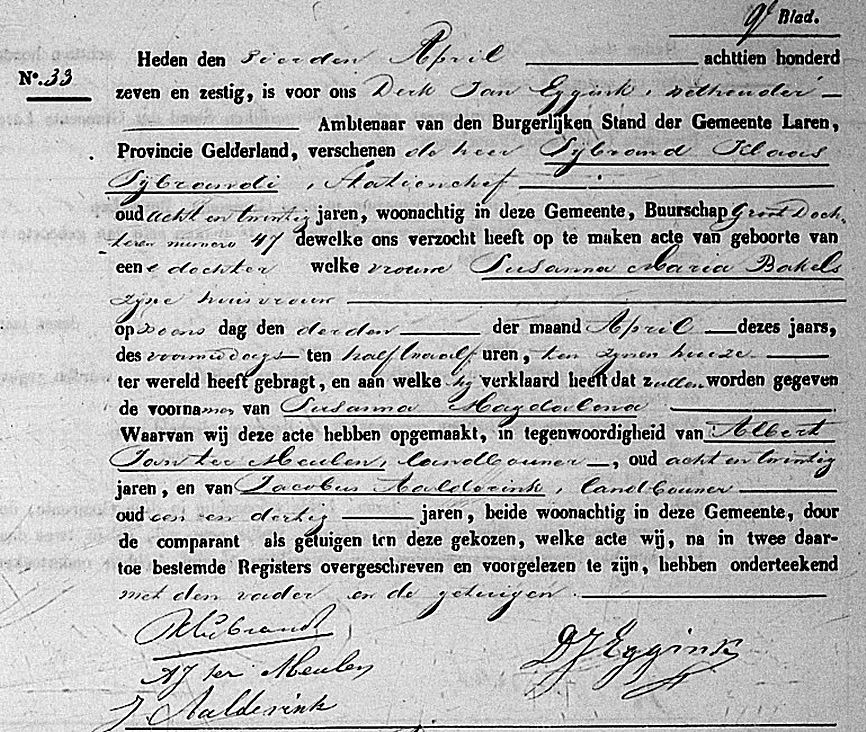 9e Blad.
Heden den vierden April achttien honderd
No. 33
zeven en zestig, is voor ons Derk Jan Eggink, wethouder
Ambtenaar van den Burgerlijken Stand der Gemeente Laren,
Provincie Gelderland, verschenen de heer Sijbrand Klaas
Sijbrandi, Stationchef
oud acht en twintig jaren, woonachtig in deze Gemeente, Buurschap Groot Doch-
teren numero 47 dewelke ons verzocht heeft op te maken acte van geboorte van
eene dochter welke vrouwe Susanna Maria Bakels
zyne huisvrouw
op woens dag den derden der maand April dezes jaars,
des voormiddags ten half twaalf uren, ten zynen huize
ter wereld heeft gebragt, en aan welke hij verklaard heeft dat zullen worden gegeven
de voornamen van Susanna Magdalena
Waarvan wij deze acte hebben opgemaakt, in tegenwoordigheid van Albert
Jan ter Meulen, landbouwer, oud acht en twintig
jaren, en van Jacobus Aalderink, landbouwer
oud een en dertig jaren, beide woonachtig in deze Gemeente, door
de comparant als getuigen ten deze gekozen, welke acte wij, na in twee daar-
toe bestemde Registers overgeschreven en voorgelezen te zijn, hebben onderteekend
met den vader en de getuigen.
DJ Eggink
AJ ter Meulen
J Aalderink